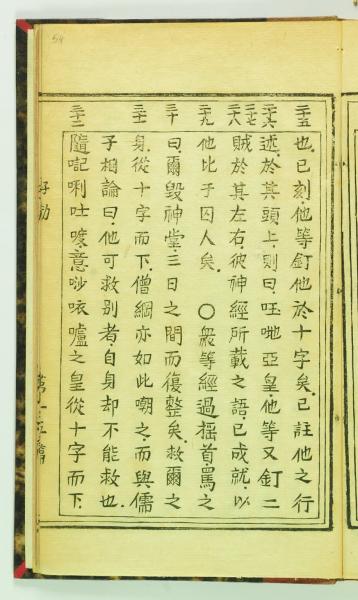 54
二十五 也已刻他等釘他於十字矣已註他之行
二十六 述於其頭上則曰㕵哋亞皇他等又釘二
二十七 二十八 賊於其左右彼神經所載之語已成就以
二十九 他比于囚人矣○衆等經過揺首罵之
三十 曰爾毀神堂三日之間而復整矣救爾之
三十一 身從十字而下僧綱亦如此嘲之而與儒
子相論曰他可救别者自身却不能救也
三十二 隨
唎吐
意
咴嚧之皇從十字而下
第十五篇